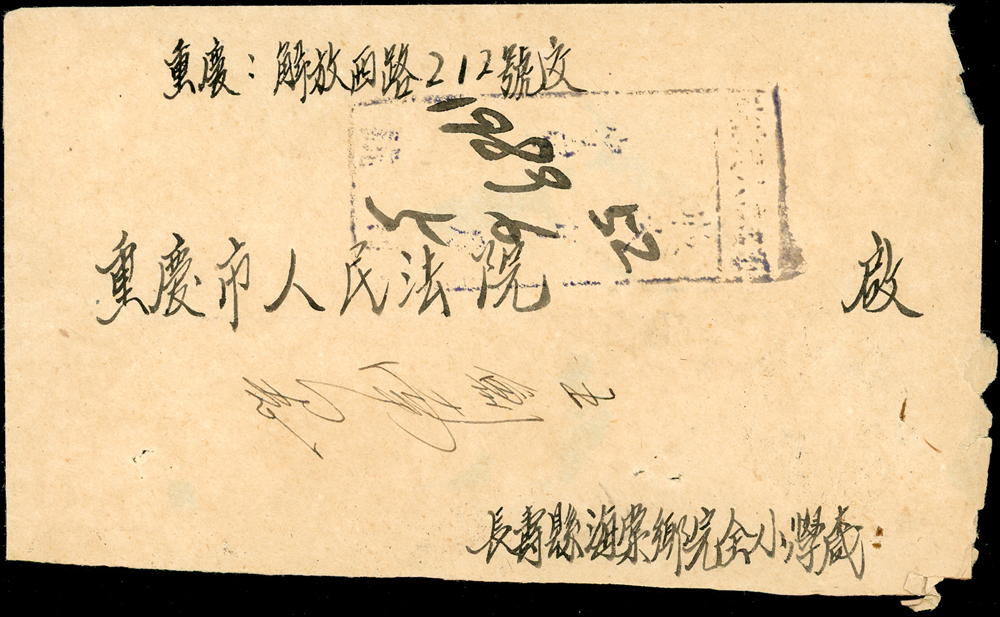 重慶：解放西路212號交
1989
52
6
5
重慶市人民法院 啟
長壽縣海棠鄉完全小學咸